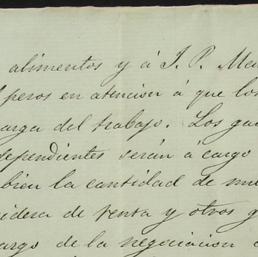 alimentos y á J. P. Ma
pesos en atencion á que los
arga del trabajo. Los ga
dependientes serán á cargo
bien la cantidad de
de venta y otros g
argo de la negociacion